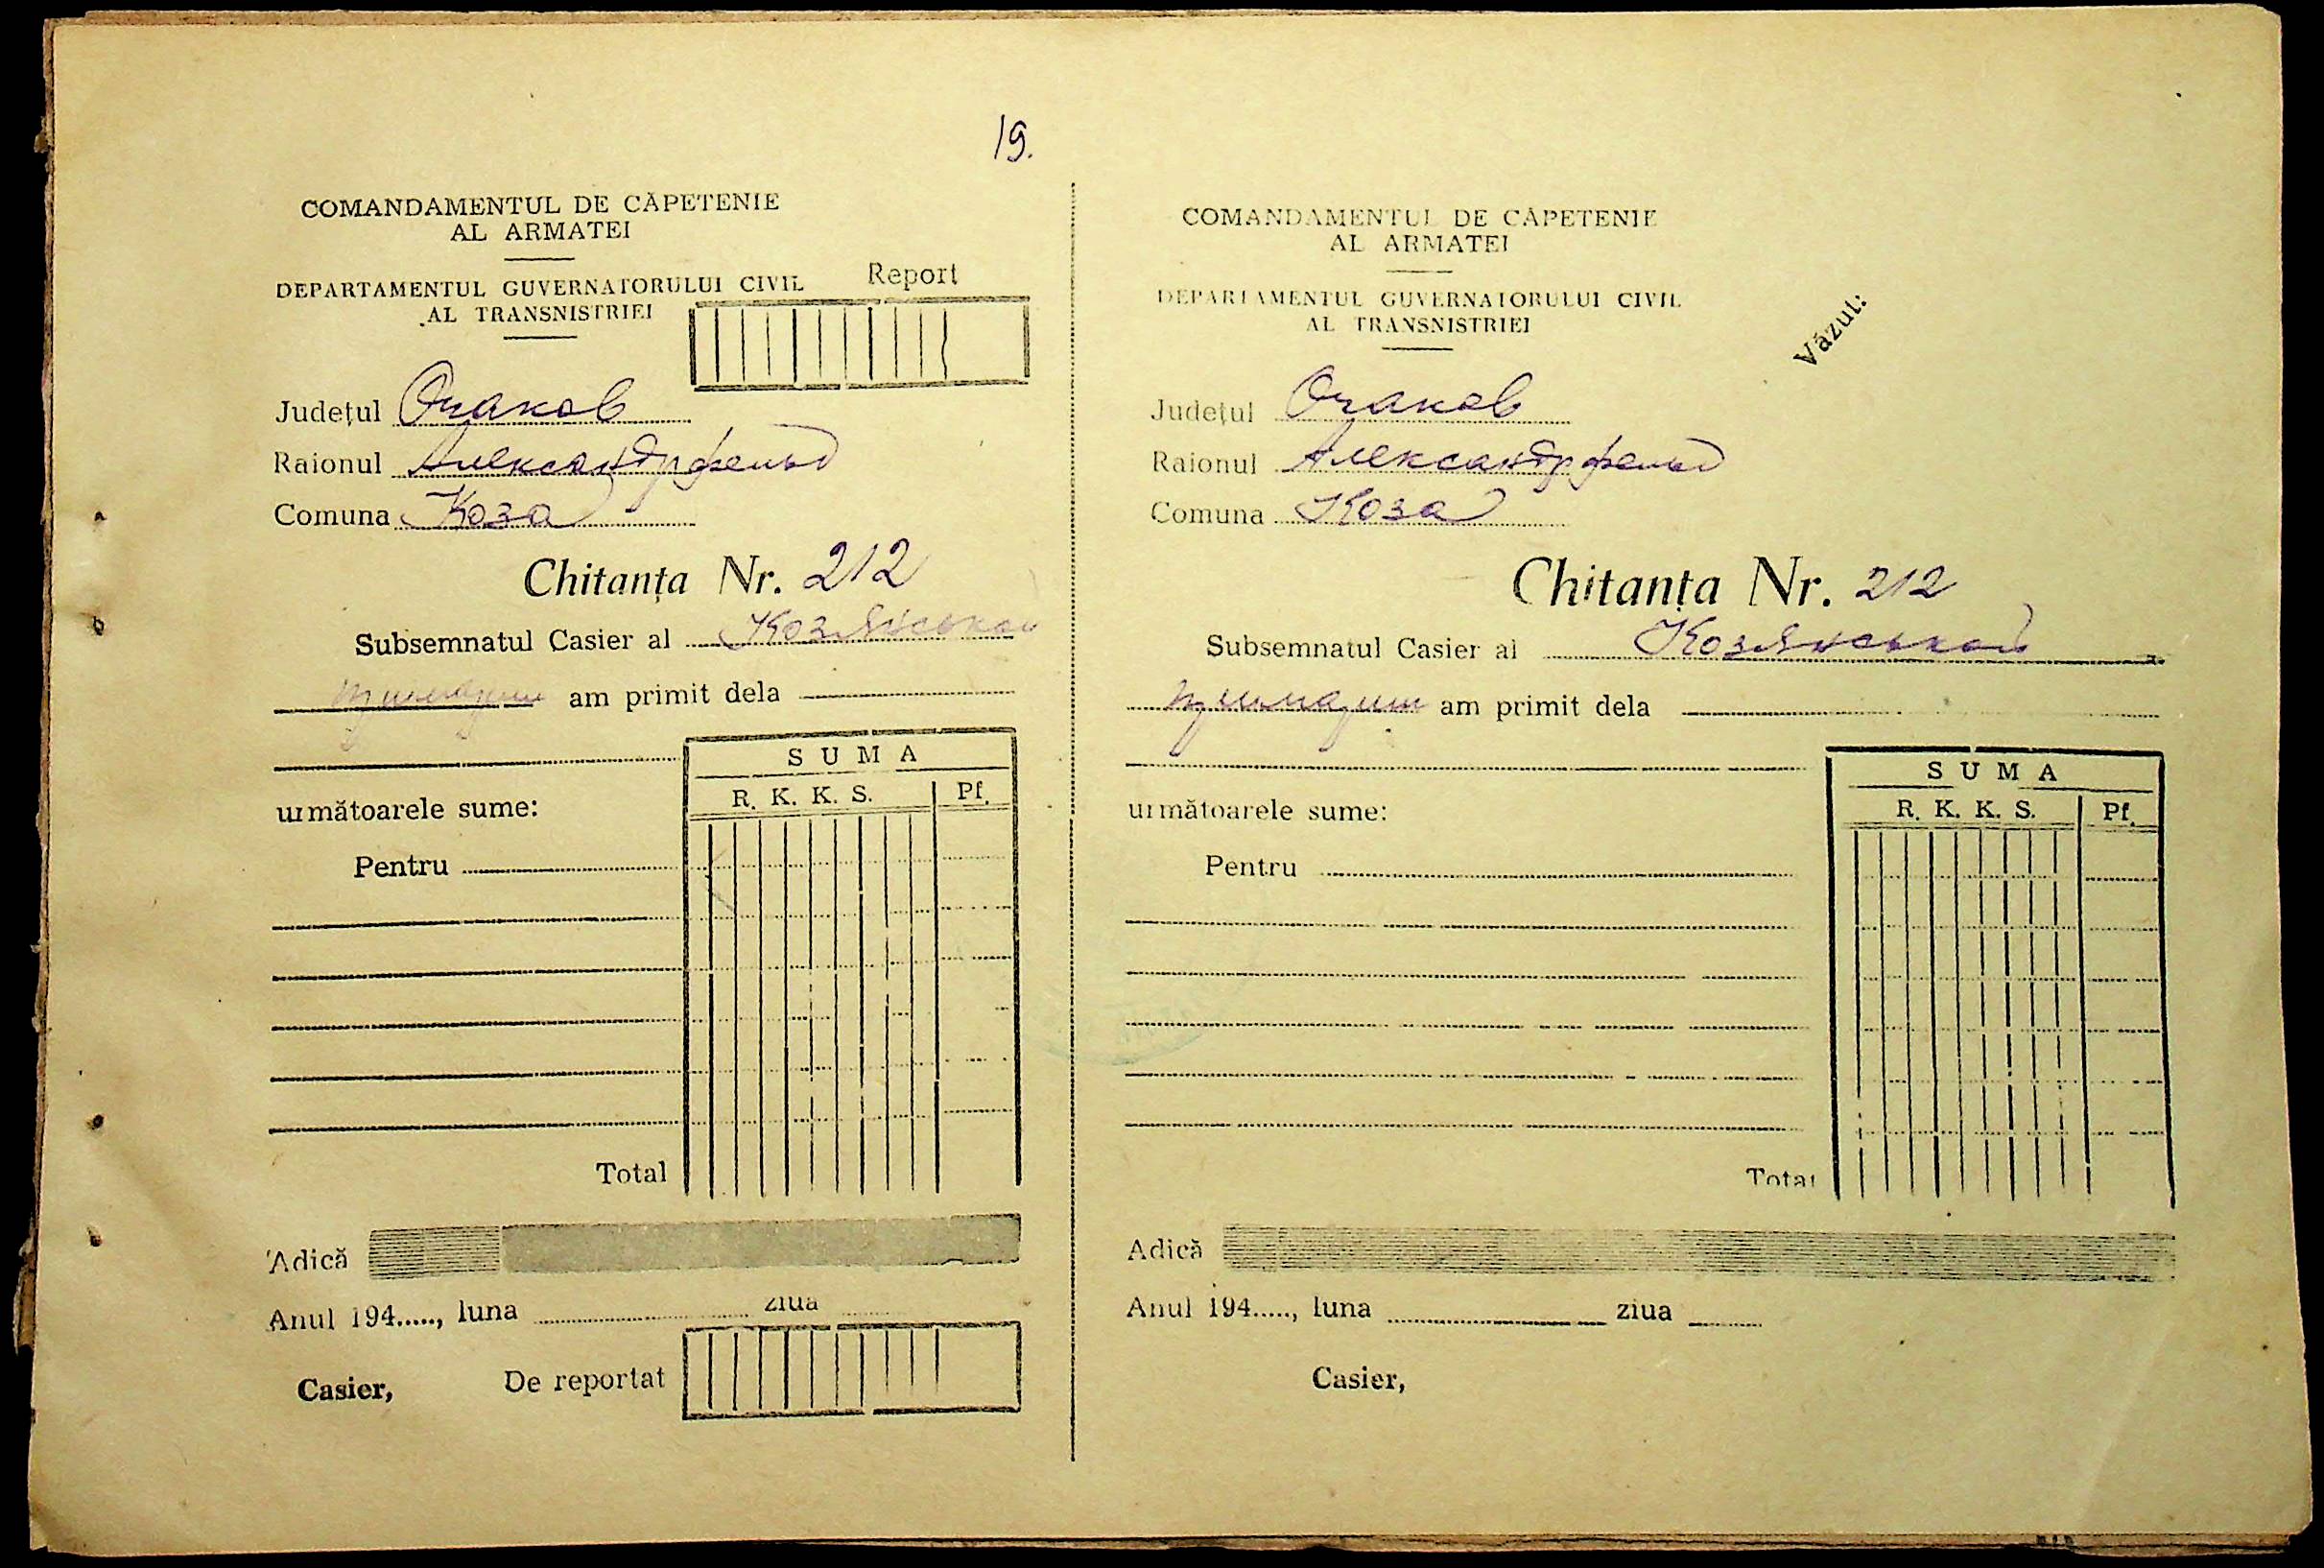 19.
COMANDAMENTUL DE CĂPETENIE
AL ARMATEI
DEPARTAMENTUL GUVERNATORULUI CIVIL
AL TRANSNISTRIEI
Report
Județul Очаков
Raionul Александрфельд
Comuna Коза
Chitanța Nr. 212
Subsemnatul Casier al Козянською
примарии am primit dela
SUMA
R. K. K. S. Pf.
următoarele sume:
Pentru
Total
Adică
Anul 194....., luna ziua
Casier, De reportat
COMANDAMENTUL DE CĂPETENIE
AL ARMATEI
DEPARTAMENTUL GUVERNATORULUI CIVIL
AL TRANSNISTRIEI
Văzut:
Județul Очаков
Raionul Александрфельд
Comuna Коза
Chitanța Nr. 212
Subsemnatul Casier al Козянськой
примарии am primit dela
SUMA
R. K. K. S. Pf.
următoarele sume:
Pentru
Total
Adică
Anul 194....., luna ziua
Casier,